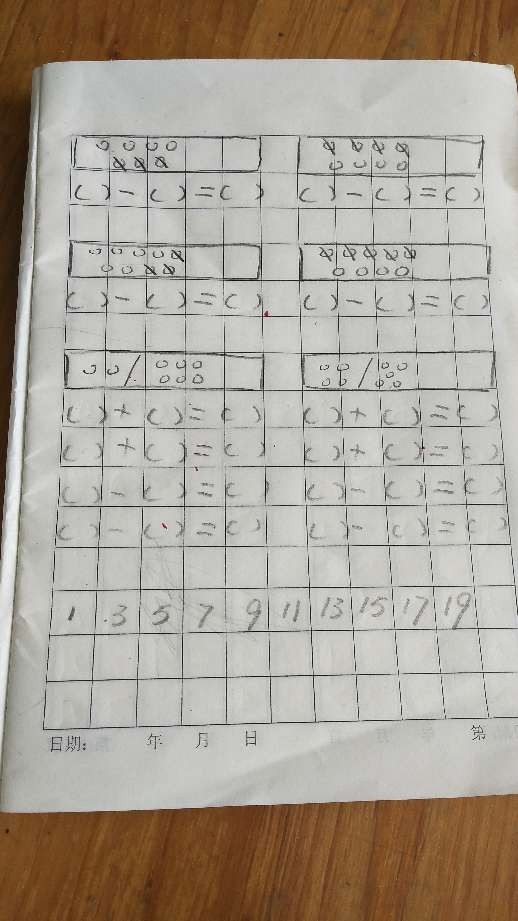 ( ) - ( ) = ( ) ( ) - ( ) = ( )
( ) - ( ) = ( ) ( ) - ( ) = ( )
( ) + ( ) = ( ) ( ) + ( ) = ( )
( ) + ( ) = ( ) ( ) + ( ) = ( )
( ) - ( ) = ( ) ( ) - ( ) = ( )
( ) - ( ) = ( ) ( ) - ( ) = ( )
1 3 5 7 9 11 13 15 17 19
日期: 年 月 日 第